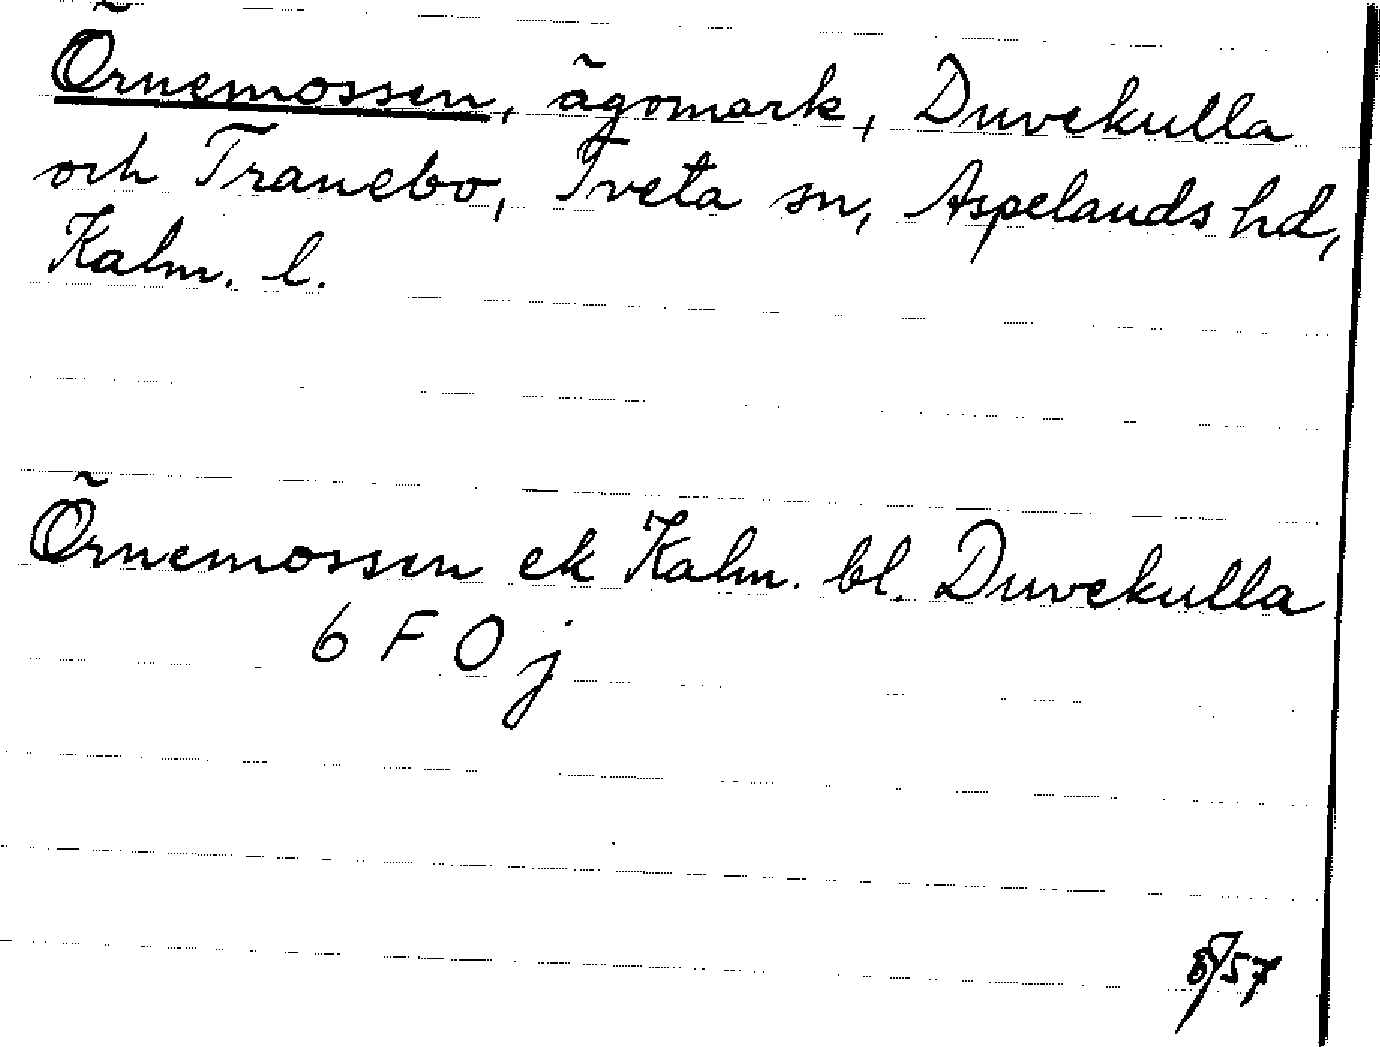 Örnemossen, ägomark, Duvekulla
och Tranebo, Tveta sn, Aspelands hd,
Kalm. l.
Örnemossen ek Kalm. bl. Duvekulla
6 F 0 j